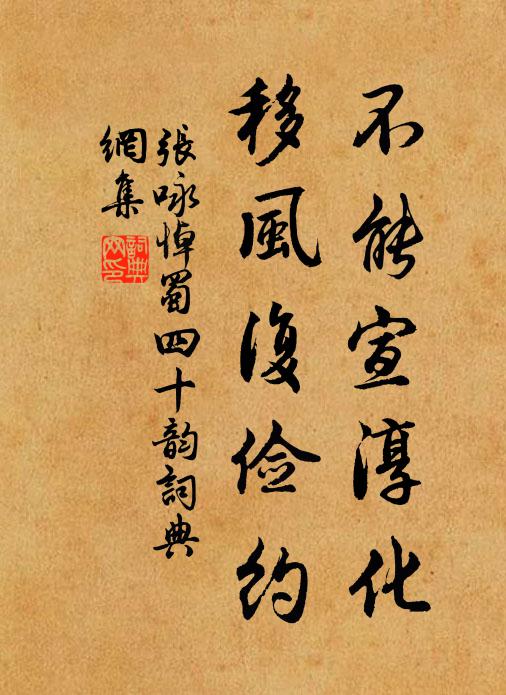 不能宣淳化
移風復俭约
張咏悼蜀四十韵詞典
網集
詞典
网印